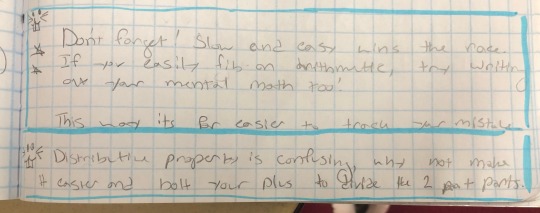 Don't forget! Slow and easy wins the race.
If you easily fib on arithmetic, try writing
out your mental math too!
This way its far easier to track your mistake
Distributive property is confusing, why not make
it easier and bolt your plus to divize the 2 parts.